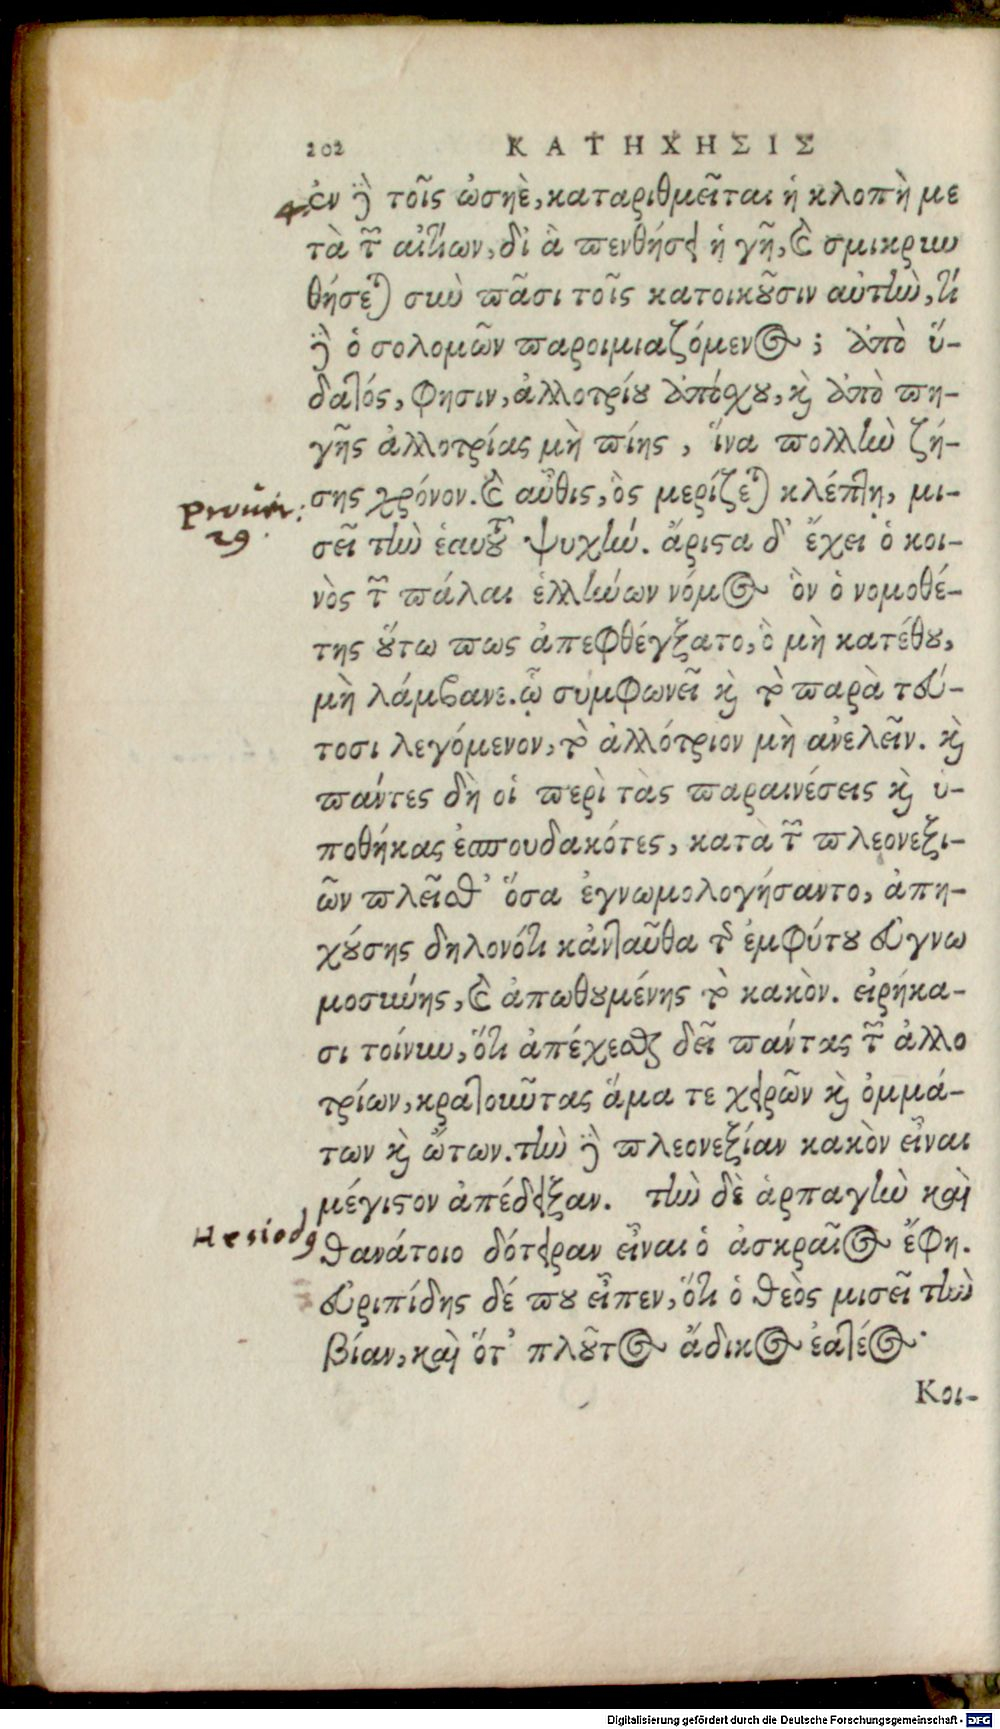 202 ΚΑΤΗΧΗΣΙΣ
4. ἐν δὲ τοῖς ὠσηὲ, καταριθμεῖται ἡ κλοπὴ με
τὰ τῶν αἰτίων, δι᾽ ἃ πενθήσει ἡ γῆ, καὶ σμικρυν
θήσεται σὺν πᾶσι τοῖς κατοικοῦσιν αὐτὴν, τί
δὲ ὁ σολομῶν παροιμιαζόμενος; ἀπὸ ὕ-
δατός, φησιν, ἀλλοτρίου ἀπόσχου, καὶ ἀπὸ πη-
γῆς ἀλλοτρίας μὴ πίῃς, ἵνα πολλὺν ζή-
Prouer:
29
σῃς χρόνον. καὶ αὖθις, ὃς μερίζεται κλέπτῃ, μι-
σεῖ τὴν ἑαυτοῦ ψυχήν. ἄριστα δ᾽ ἔχει ὁ κοι-
νὸς τῶν πάλαι ἑλλήνων νόμος ὃν ὁ νομοθέ-
της οὕτω πως ἀπεφθέγξατο, ὃ μὴ κατέθου,
μὴ λάμβανε. ᾧ συμφωνεῖ καὶ τὸ παρὰ τευ-
τοσι λεγόμενον, τὸ ἀλλότριον μὴ ἀνελεῖν. καὶ
πάντες δὴ οἱ περὶ τὰς παραινέσεις καὶ ὑ-
ποθήκας ἐσπουδακότες, κατὰ τῶν πλεονεξι-
ῶν πλεῖσθ᾽ ὅσα ἐγνωμολογήσαντο, ἀπη-
χούσης δηλονότι κἀνταῦθα τῆς ἐμφύτου εὐγνω
μοσύνης, καὶ ἀπωθουμένης τὸ κακὸν. εἰρήκα-
σι τοίνυν, ὅτι ἀπέχεσθαι δεῖ πάντας τῶν ἀλλο
τρίων, κρατοῦντας ἅμα τε χειρῶν καὶ ὀμμά-
των καὶ ὤτων. τὴν δὲ πλεονεξίαν κακὸν εἶναι
μέγιστον ἀπέδειξαν. τὴν δὲ ἁρπαγὴν καὶ
Hesiodus
θανάτοιο δότειραν εἶναι ὁ ἀσκραῖος ἔφη.
εὐριπίδης δέ που εἶπεν, ὅτι ὁ θεὸς μισεῖ τὴν
βίαν, καὶ ὅτ᾽ πλοῦτος ἄδικος ἐατέος.
Κοι-
Digitalisierung gefördert durch die Deutsche Forschungsgemeinschaft - DFG